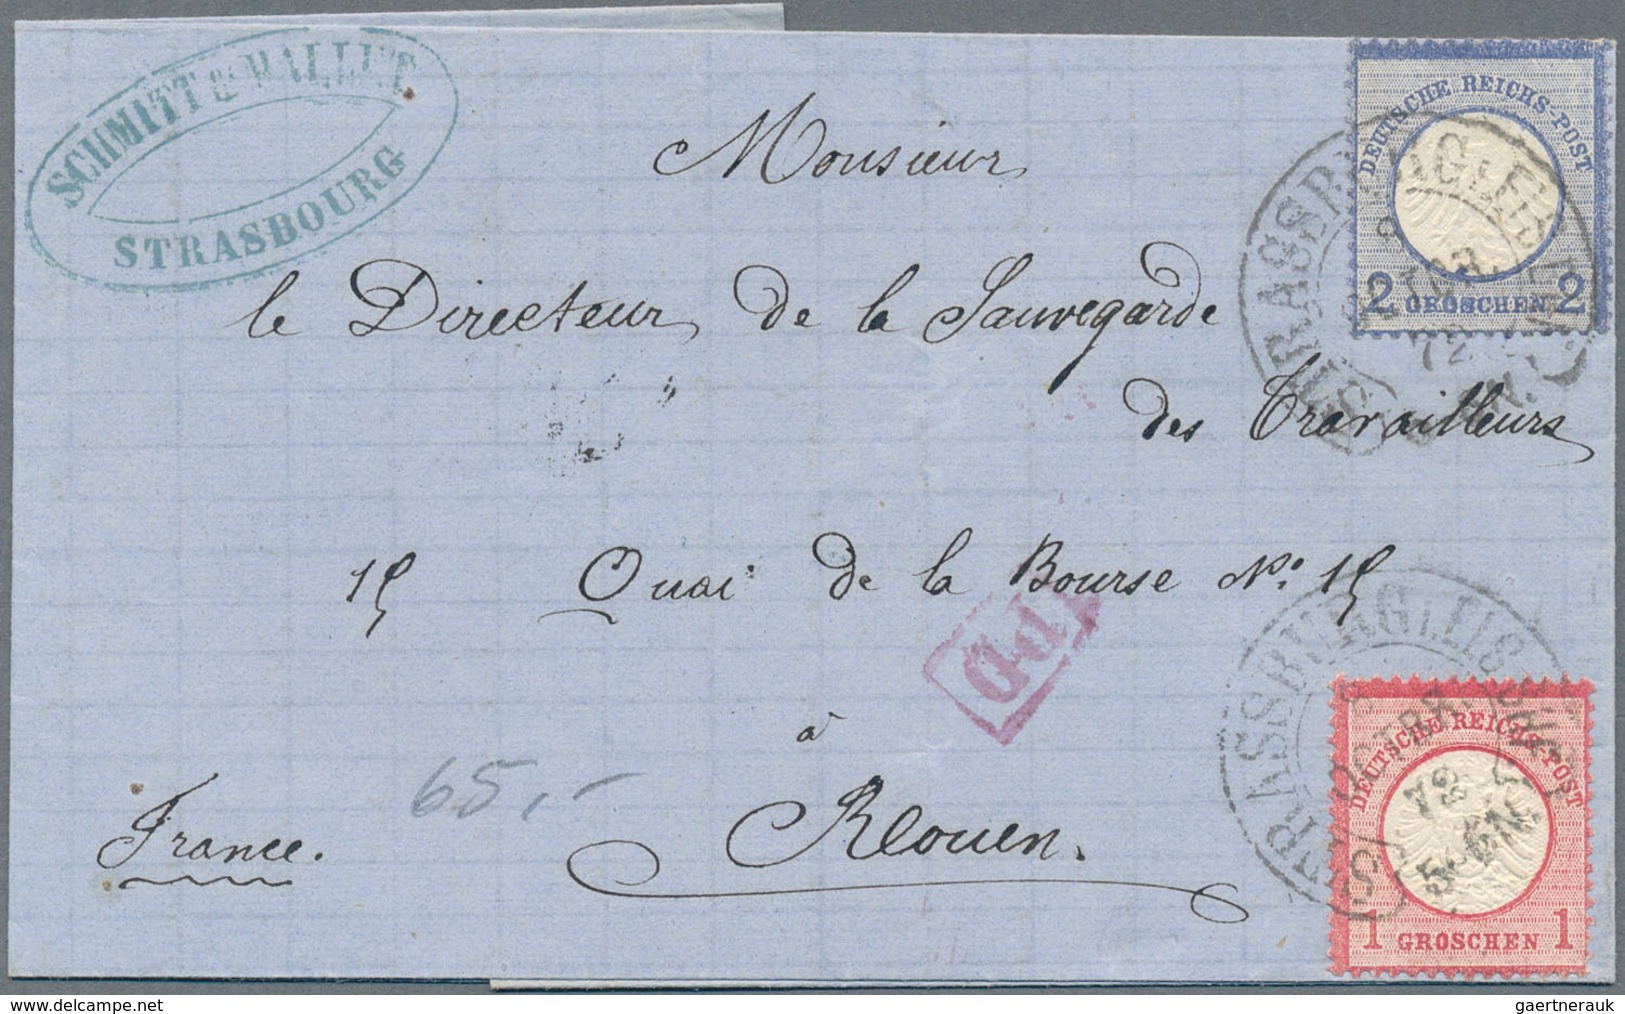 SCHMITT & MALLET
STRASBOURG
Monsieur
le Directeur de la Sauvegarde
des Travailleurs
15 Quai de la Bourse No. 15
à
Rouen.
France.
65,-
PD
DEUTSCHE REICHS-POST
2 GROSCHEN 2
72
STRASSBURG i. ELS
DEUTSCHE REICHS-POST
1 GROSCHEN 1
72
5-6 N
gaertnerauk